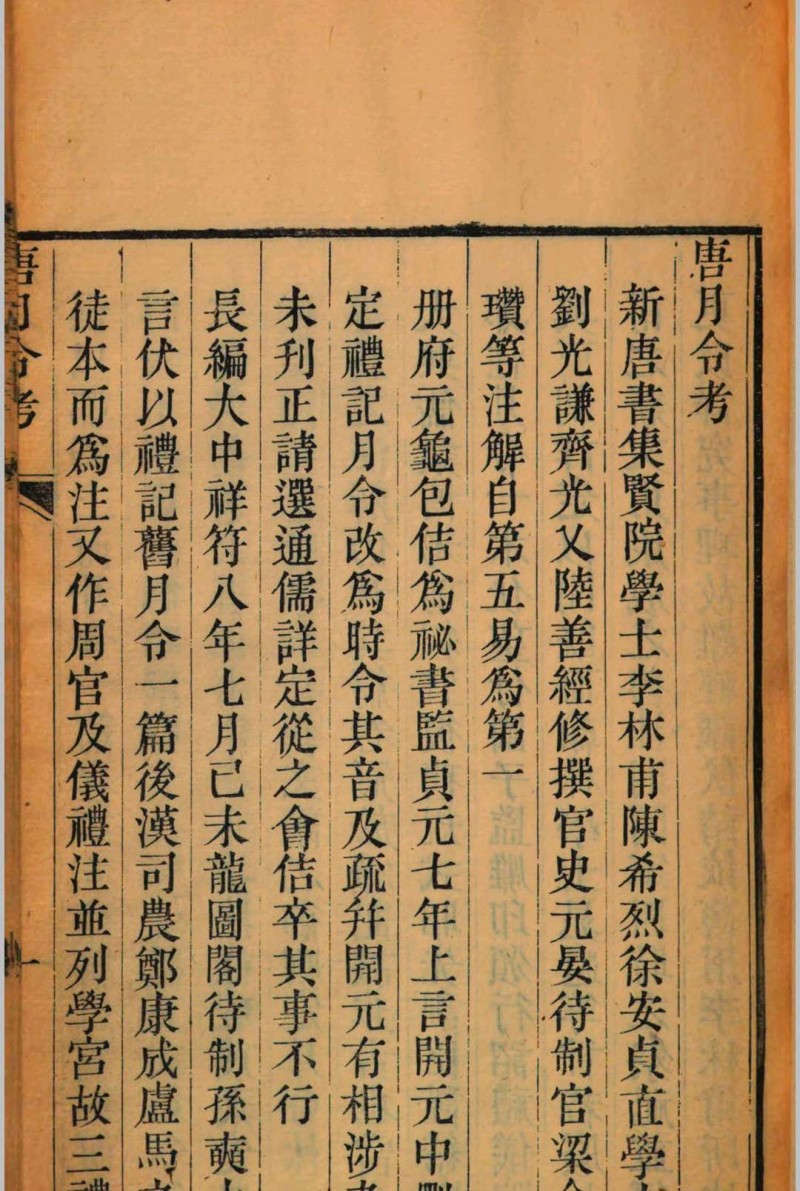 唐月令考
新唐書集賢院學士李林甫陳希烈徐安貞直學
劉光謙齊光乂陸善經修撰官史元晏待制官梁令
瓚等注解自第五易爲第一
册府元龜包佶爲祕書監貞元七年上言開元中刪
定禮記月令改爲時令其音及疏幷開元有相涉
未刊正請選通儒詳定從之會佶卒其事不行
長編大中祥符八年七月己未龍圖閣待制孫奭
言伏以禮記舊月令一篇後漢司農鄭康成盧馬
徒本而爲注又作周官及儀禮注並列學宮故三禮
唐月令考
一